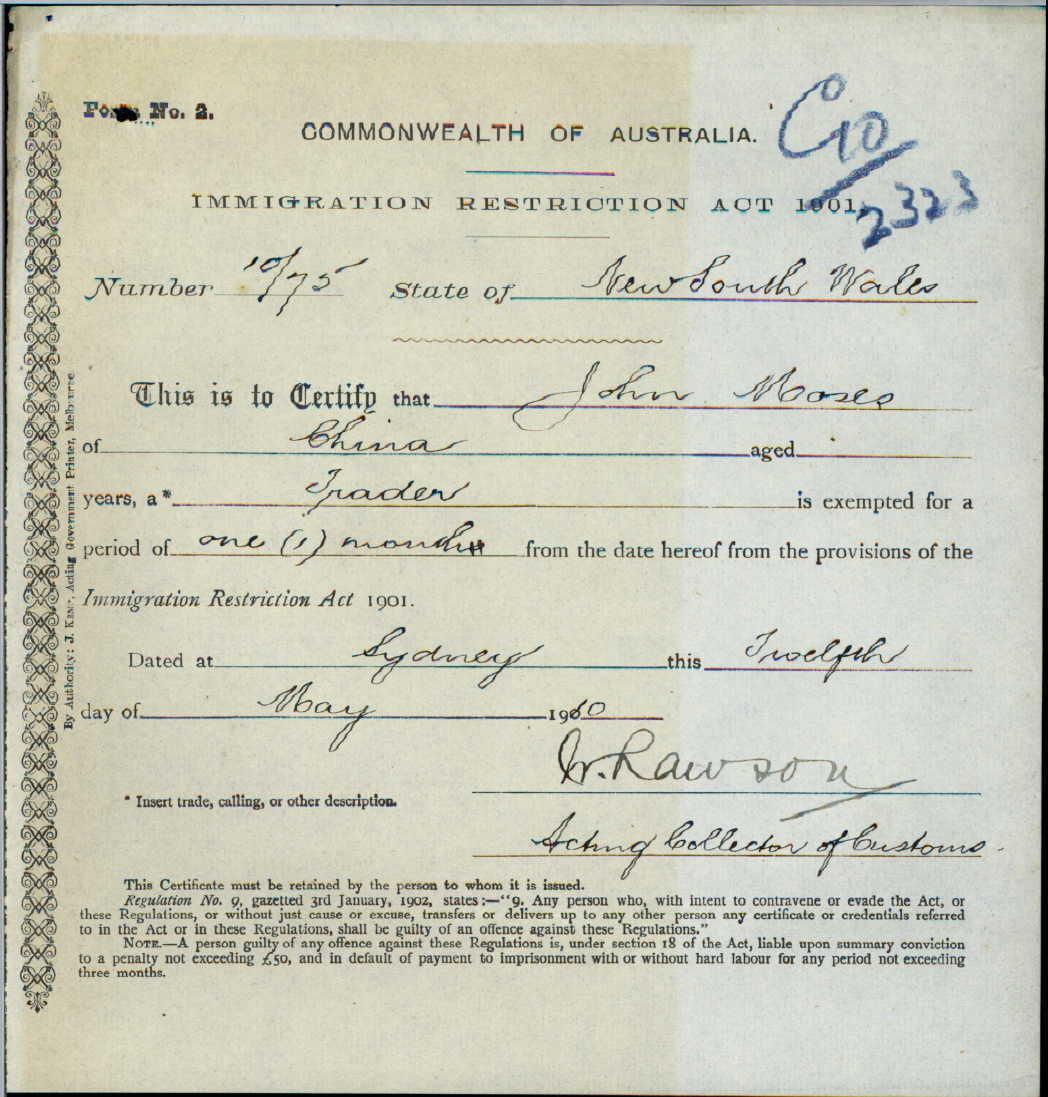 Form No. 2.
C10/2323
COMMONWEALTH OF AUSTRALIA.
IMMIGRATION RESTRICTION ACT 1901.
Number 10/75 State of New South Wales
This is to Certify that John Moses
of China aged
years, a* Trader is exempted for a
period of one (1) month from the date hereof from the provisions of the
Immigration Restriction Act 1901.
Dated at Sydney this Twelfth
day of May 1910
W. Rawson
* Insert trade, calling, or other description.
Acting Collector of Customs.
This Certificate must be retained by the person to whom it is issued.
Regulation No. 9, gazetted 3rd January, 1902, states:—"9. Any person who, with intent to contravene or evade the Act, or
these Regulations, or without just cause or excuse, transfers or delivers up to any other person any certificate or credentials referred
to in the Act or in these Regulations, shall be guilty of an offence against these Regulations."
NOTE.—A person guilty of any offence against these Regulations is, under section 18 of the Act, liable upon summary conviction
to a penalty not exceeding £50, and in default of payment to imprisonment with or without hard labour for any period not exceeding
three months.
By Authority: J. KEMP, Acting Government Printer, Melbourne.